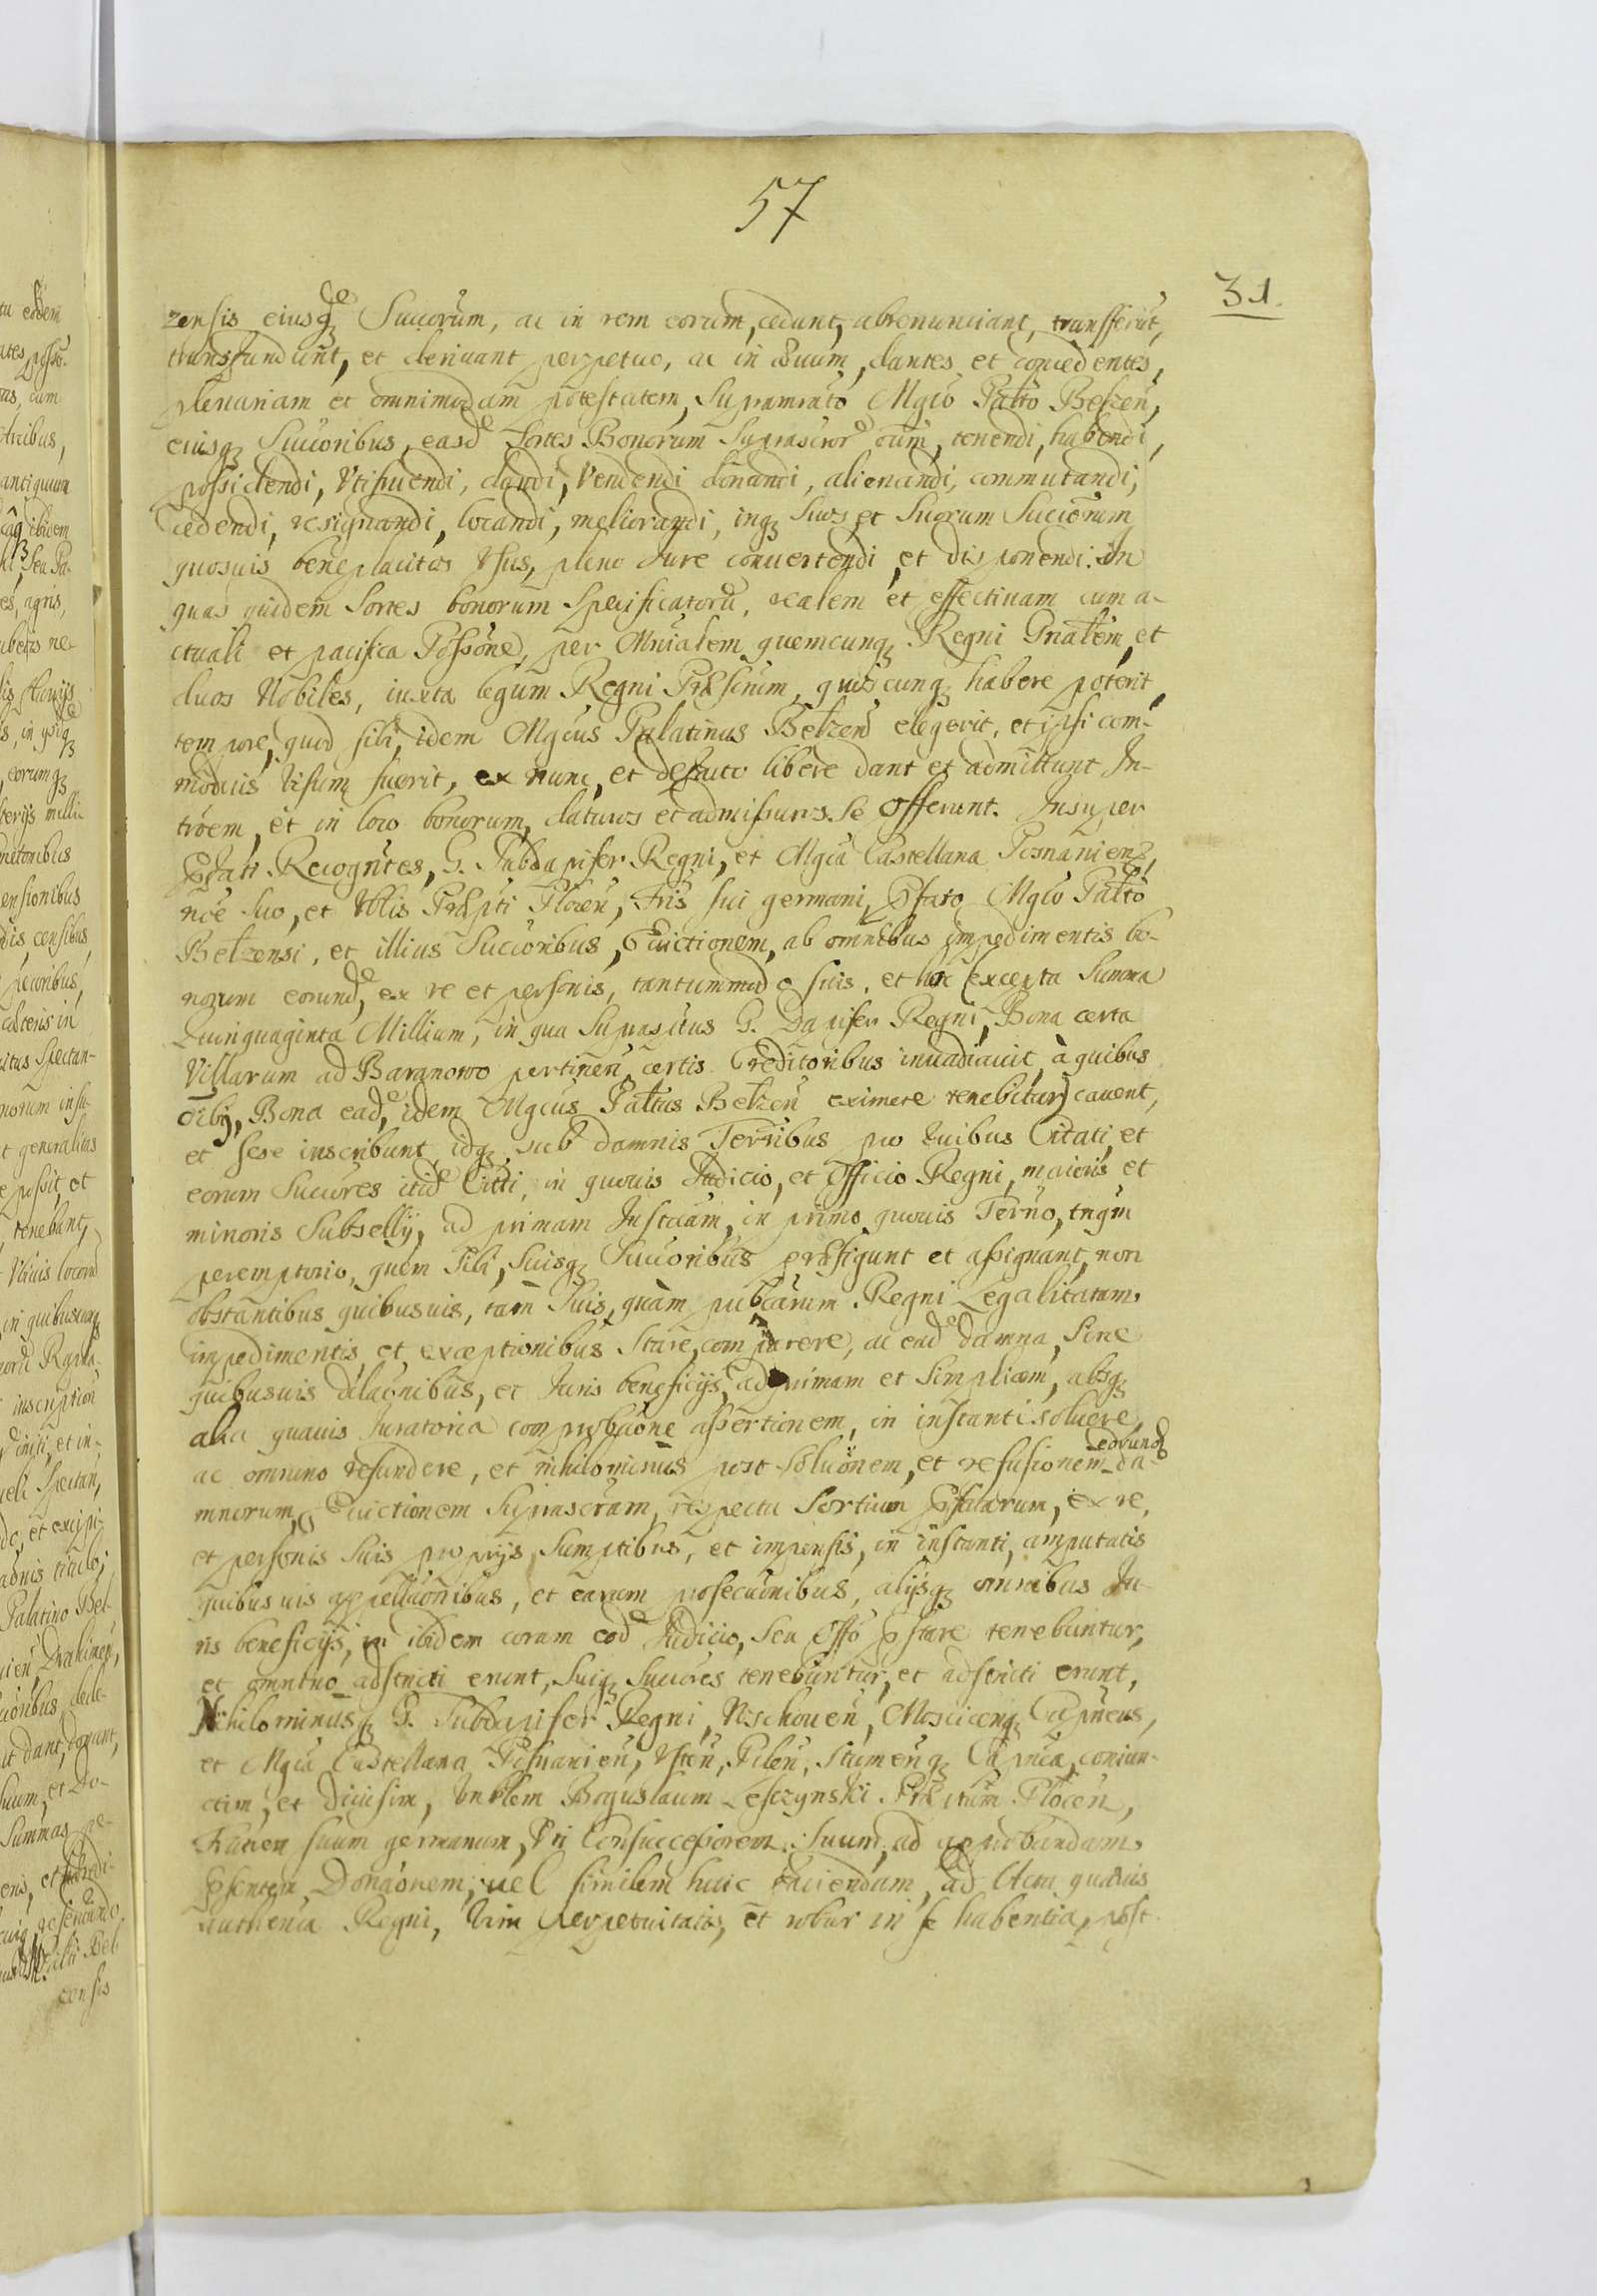 57
31.
zensis eiusqz de Succorum, ac in rem eorum, cedunt, abrenunciant, transfferut,
transfundunt, et deriuant perpetuo, ac in æuum, dantes et concedentes,
plenariam et omnimodam potestatem, Supramnto Mgco Palto Belzen,
eiusqz Succoribus, easde Sortes Bonorum Suprascror oum, tenendi, habendi,
possidendi, Vtifruendi, dandi, Vendendi donandi, alienandi, commutandi,
cedendi, resignandi, locandi, meliorandi, inqz Suos et Suorum Succorum
quosuis beneplacitos Vsus, pleno Iure conuertendi, et disponendi. In
quas quidem Sortes bonorum Specificatoru, realem et effectiuam cum a-
ctuali et pacifica Possone, per Mnialem quemcunqz Regni Gnalem, et
duos Nobiles, iuxta legum Regni Præscrum, quiscunqz habere poterit,
tempore, quod sibi, idem Mgcus Palatinus Belzen elegerit, et ipsi com-
modius visum fuerit, ex nunc, et defacto libere dant et admittunt In-
troem, et in loco bonorum, daturos et admissuros Se offerunt. Insuper
Pdati Recogntes, G. Subdapifer Regni, et Mgca Castellana Posnaniens,
noe suo, et Mtis Præpti Plocen, Fris sui germani, Pfato Mgco Palto
Belzensi, et illius Succoribus, Euictionem, ab omnibus impedimentis bo-
norum eorunde, ex re et personis, tantummodo suis, et hoc (excepta Summa
Quinquaginta Millium, in qua Suprascrtus G. Dapifer Regni, Bona certa
Villarum ad Baranowo pertinen certis Creditoribus inuadiauit, à quibus
oibus, Bona eade, idem Mgcus Paltus Belzen eximere tenebitur) cauent,
et sese inscribunt, idqz sub damnis Terribus pro quibus Citati, et
eorum Succores itid Citti, in quouis Iudicio, et Officio Regni, maioris et
minoris Subsellij, ad primam Instciam, in primo quouis Terno, tnqm
peremptorio, quem Sibi, Suisqz Succoribus præfigunt et assignant, non
obstantibus quibusuis, tam Suis, quàm publcarum Regni Legalitatum
impedimentis, et exceptionibus Stare, comparere, ac eade damna, Sine
quibusuis dilaonibus, et Iuris beneficijs, ad primam et Simplicem, absqz
alia quauis Iuratoria comprobaone assertionem, in instanti soluere,
ac omnino refundere, et nihilominus post soluonem, et refusionem eorund da-
mnorum, Euictionem Suprascram, respectu Sortium Pfatarum, ex re,
et personis Suis proprijs, Sumptibus, et impensis, in instanti, amputatis
quibusuis appellaonibus, et earum prosecuonibus, alijsqz omnibus Iu-
ris beneficijs, ibidem coram eod Iudicio, Seu Offo Pstare tenebuntur,
et omnino adstricti erunt, Suiqz Succores tenebuntur, et adstricti erunt,
Nihilominusqz G. Subdapifer Regni, Nschouen, Moscicenqz Capneus,
et Mgca Castellana Posnanien, Vsten, Pilen, Stumenqz Capnea, coniun-
ctim, et Diuisim, Vnblem Boguslaum Leszczynski Præptum Plocen,
Fratrem suum germanum, Vti Consuccessorem Suum, ad approbandam
Psentem Donaonem, uel similem huic faciendam, ad Acta quæuis
Authentca Regni, Vim perpetuitatis, et robur in se habentia, post